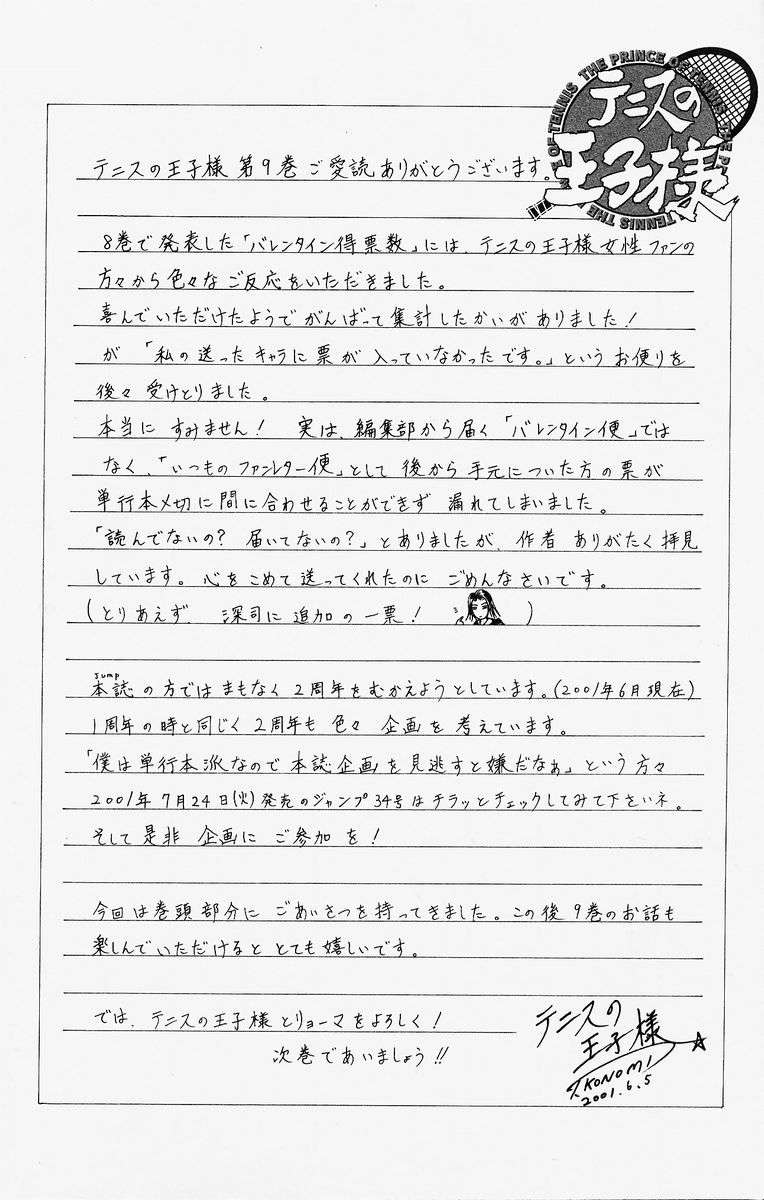 THE PRINCE OF TENNIS THE PRINCE OF TENNIS THE
テニスの
王子様
テニスの王子様 第9巻 ご愛読ありがとうございます。
8巻で発表した「バレンタイン得票数」には、テニスの王子様女性ファンの
方々から色々なご反応をいただきました。
喜んでいただけたようでがんばって集計したかいがありました!
が 「私の送ったキャラに票が入っていなかったです。」というお便りを
後々受けとりました。
本当に すみません! 実は、編集部から届く「バレンタイン便」では
なく、「いつものファンレター便」として後から手元についた方の票が
単行本〆切に間に合わせることができず 漏れてしまいました。
「読んでないの? 届いてないの?」とありましたが、作者 ありがたく拝見
しています。心をこめて送ってくれたのに ごめんなさいです。
(とりあえず、 深司に追加の一票! )
jump
本誌の方ではまもなく2周年をむかえようとしています。(2001年6月現在)
1周年の時と同じく2周年も色々 企画を考えています。
「僕は単行本派なので本誌企画を見逃すと嫌だなぁ」という方々
2001年7月24日(火)発売のジャンプ34号はチラッとチェックしてみて下さいネ。
そして是非 企画に ご参加を!
今回は巻頭部分に ごあいさつを持ってきました。この後9巻のお話も
楽しんでいただけると とても嬉しいです。
では、テニスの王子様とリョーマをよろしく!
次巻であいましょう!!
テニスの
王子様
KONOMI
2001.6.5